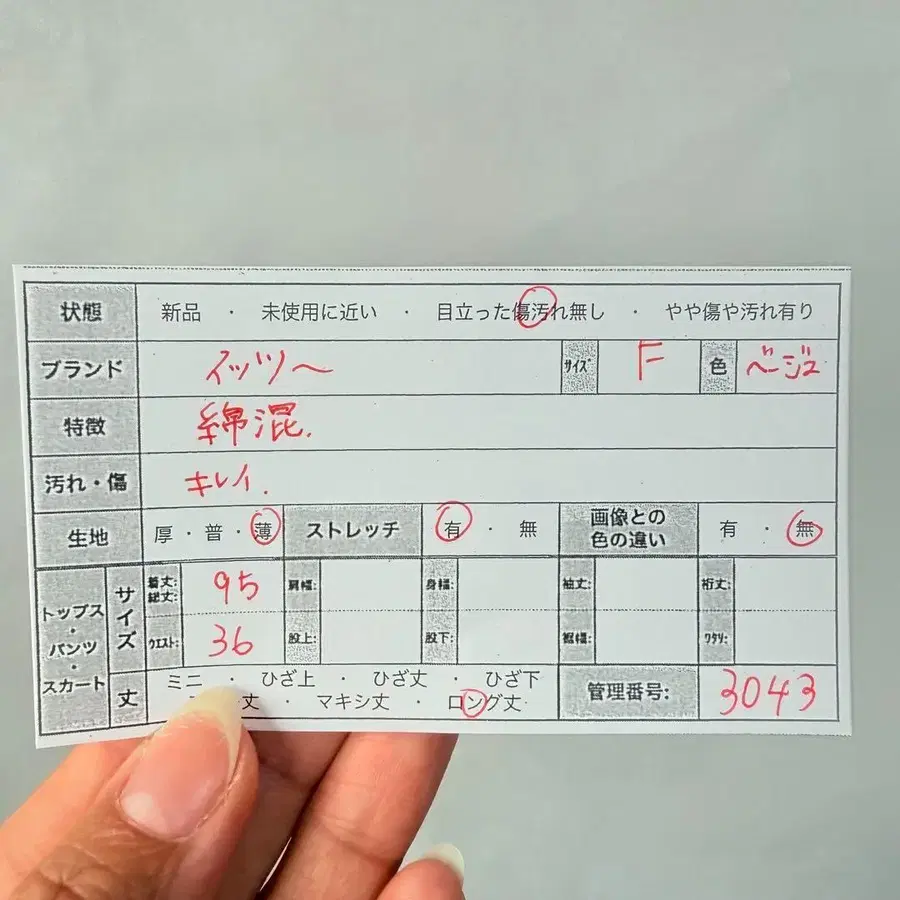 状態 新品 ・ 未使用に近い ・ 目立った傷汚れ無し ・ やや傷や汚れ有り
ブランド イッツ〜 サイズ F 色 ベージュ
特徴 綿混.
汚れ・傷 キレイ.
生地 厚・普・薄 ストレッチ 有・無 画像との色の違い 有・無
トップス・パンツ・スカート サイズ 着丈: 総丈: 95 肩幅: 身幅: 袖丈: 裄丈:
ウエスト: 36 股上: 股下: 裾幅: ワタリ:
丈 ミニ ・ ひざ上 ・ ひざ丈 ・ ひざ下
丈 ・ マキシ丈 ・ ロング丈 管理番号: 3043